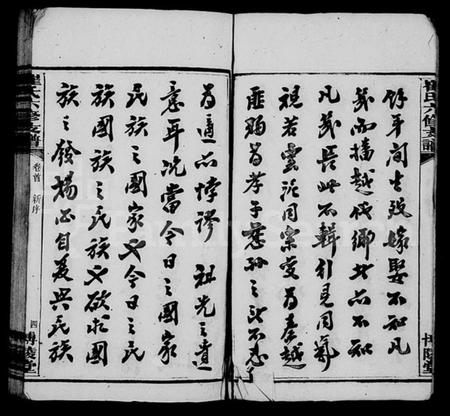 崔氏六修支譜
博陵堂
餘年間生歿嫁娶不知凡
幾而播越他鄉者亦不知
凡幾長此不輯引見同氣
視若雲泥同室变為秦越
匪獨為孝子慈孫之所不忍
為適以悖謬 祖先之遺
意耳況當今日之國家
民族之國家也今日之民
族國族之民族也欲求國
族之發揚必自與民族
崔氏六修支譜
卷首 新序
四
博陵堂